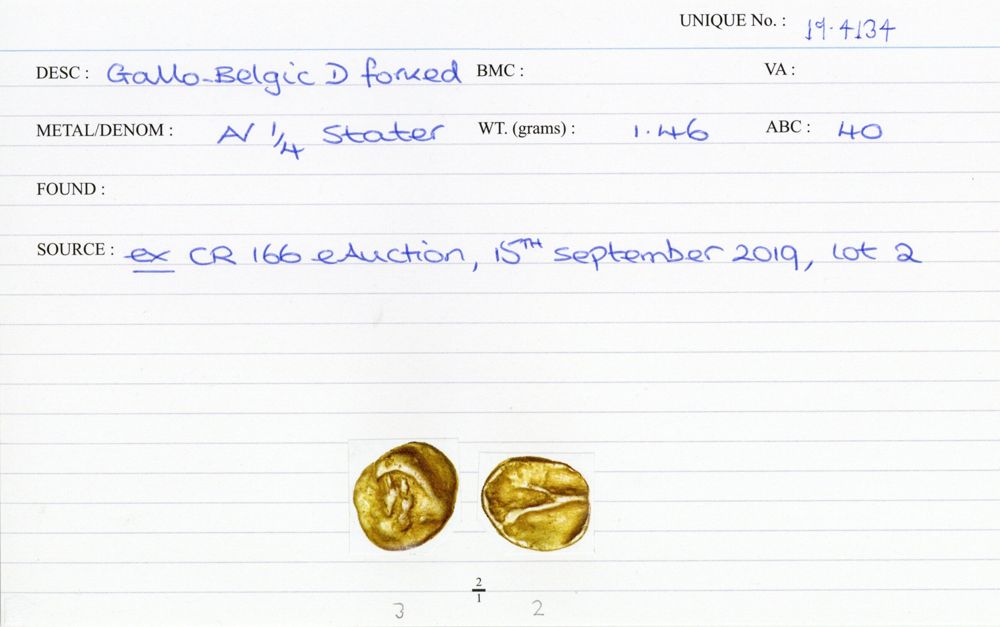 UNIQUE No. : 19.4134
DESC : Gallo-Belgic D forked BMC : VA :
METAL/DENOM : AV 1/4 Stater WT. (grams) : 1.46 ABC : 40
FOUND :
SOURCE : ex CR 166 eAuction, 15TH September 2019, lot 2
2/1
3 2